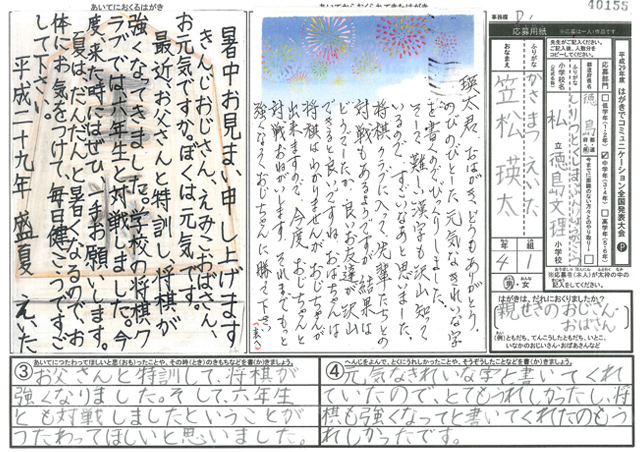 40155
あいてにおくるはがき
暑中お見まい申し上げます
きんじおじさん、えみこおばさん、
お元気ですか。ぼくは元気です。
最近お父さんと特訓し、将棋が
強くなってきました。学校の将棋ク
ラブでは六年生と対戦しました。今
度、来た時にはぜひ一手お願いします。
夏は、だんだんと暑くなるので、お
体にお気をつけて、毎日健こうですご
して下さい。
平成二十九年 盛夏 えいた
あいてからおくられてきたはがき
瑛太君、おはがき、どうもありがとう。
のびのびとした元気なきれいな字
を書くので
難しい漢字も沢山知って
いるので、すごいなあと思いました。
将棋クラブに入って先輩たちとの
対戦もあるようですが結果は
どうでしたか。良いお友達が沢山
できると良いですね。おばちゃんは
将棋はわかりませんがおじちゃんが
出来ますので、今度
対戦お願いします。それまでもっと
強くなっておじちゃんに勝って下さい。
事務欄
応募用紙
※応募は一人1作品です
平成29年度 はがきでコミュニケーション全国発表大会
応募部門
低学年(1・2年)
中学年(3・4年)
高学年(5・6年)
都道府県名
徳島
小学校名
私立 徳島文理 小学校
ふりがな
かさまつ えいた
おなまえ
笠松 瑛太
4年
1組
男・女
※応募者(本人)が太枠の中の
記入をしてください。
はがきは、だれにおくりましたか?
親せきのおじさん・
おばさん
(例)ともだち、てんこうしたともだち、いとこ、
いなかのおじいさん・おばあさんなど
あいてにつたわってほしいと思(おも)ったことや、その時(とき)のきもちなどを書(か)きましょう。
③お父さんと特訓して、将棋が
強くなりました。そして、六年生
とも対戦しましたということが
つたわってほしいと思いました。
へんじをよんで、とくにうれしかったことや、そうぞうしたことなどを書(か)きましょう。
④元気なきれいな字と書いてくれ
ていたので、とてもうれしかったし、将
棋も強くなってと書いてくれたのもう
れしかったです。